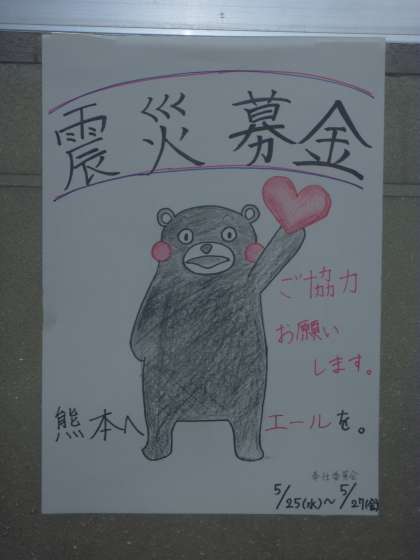 震災募金
ご協力
お願い
します。
熊本へ エールを。
奉仕委員会
5/25(水)～5/27(金)